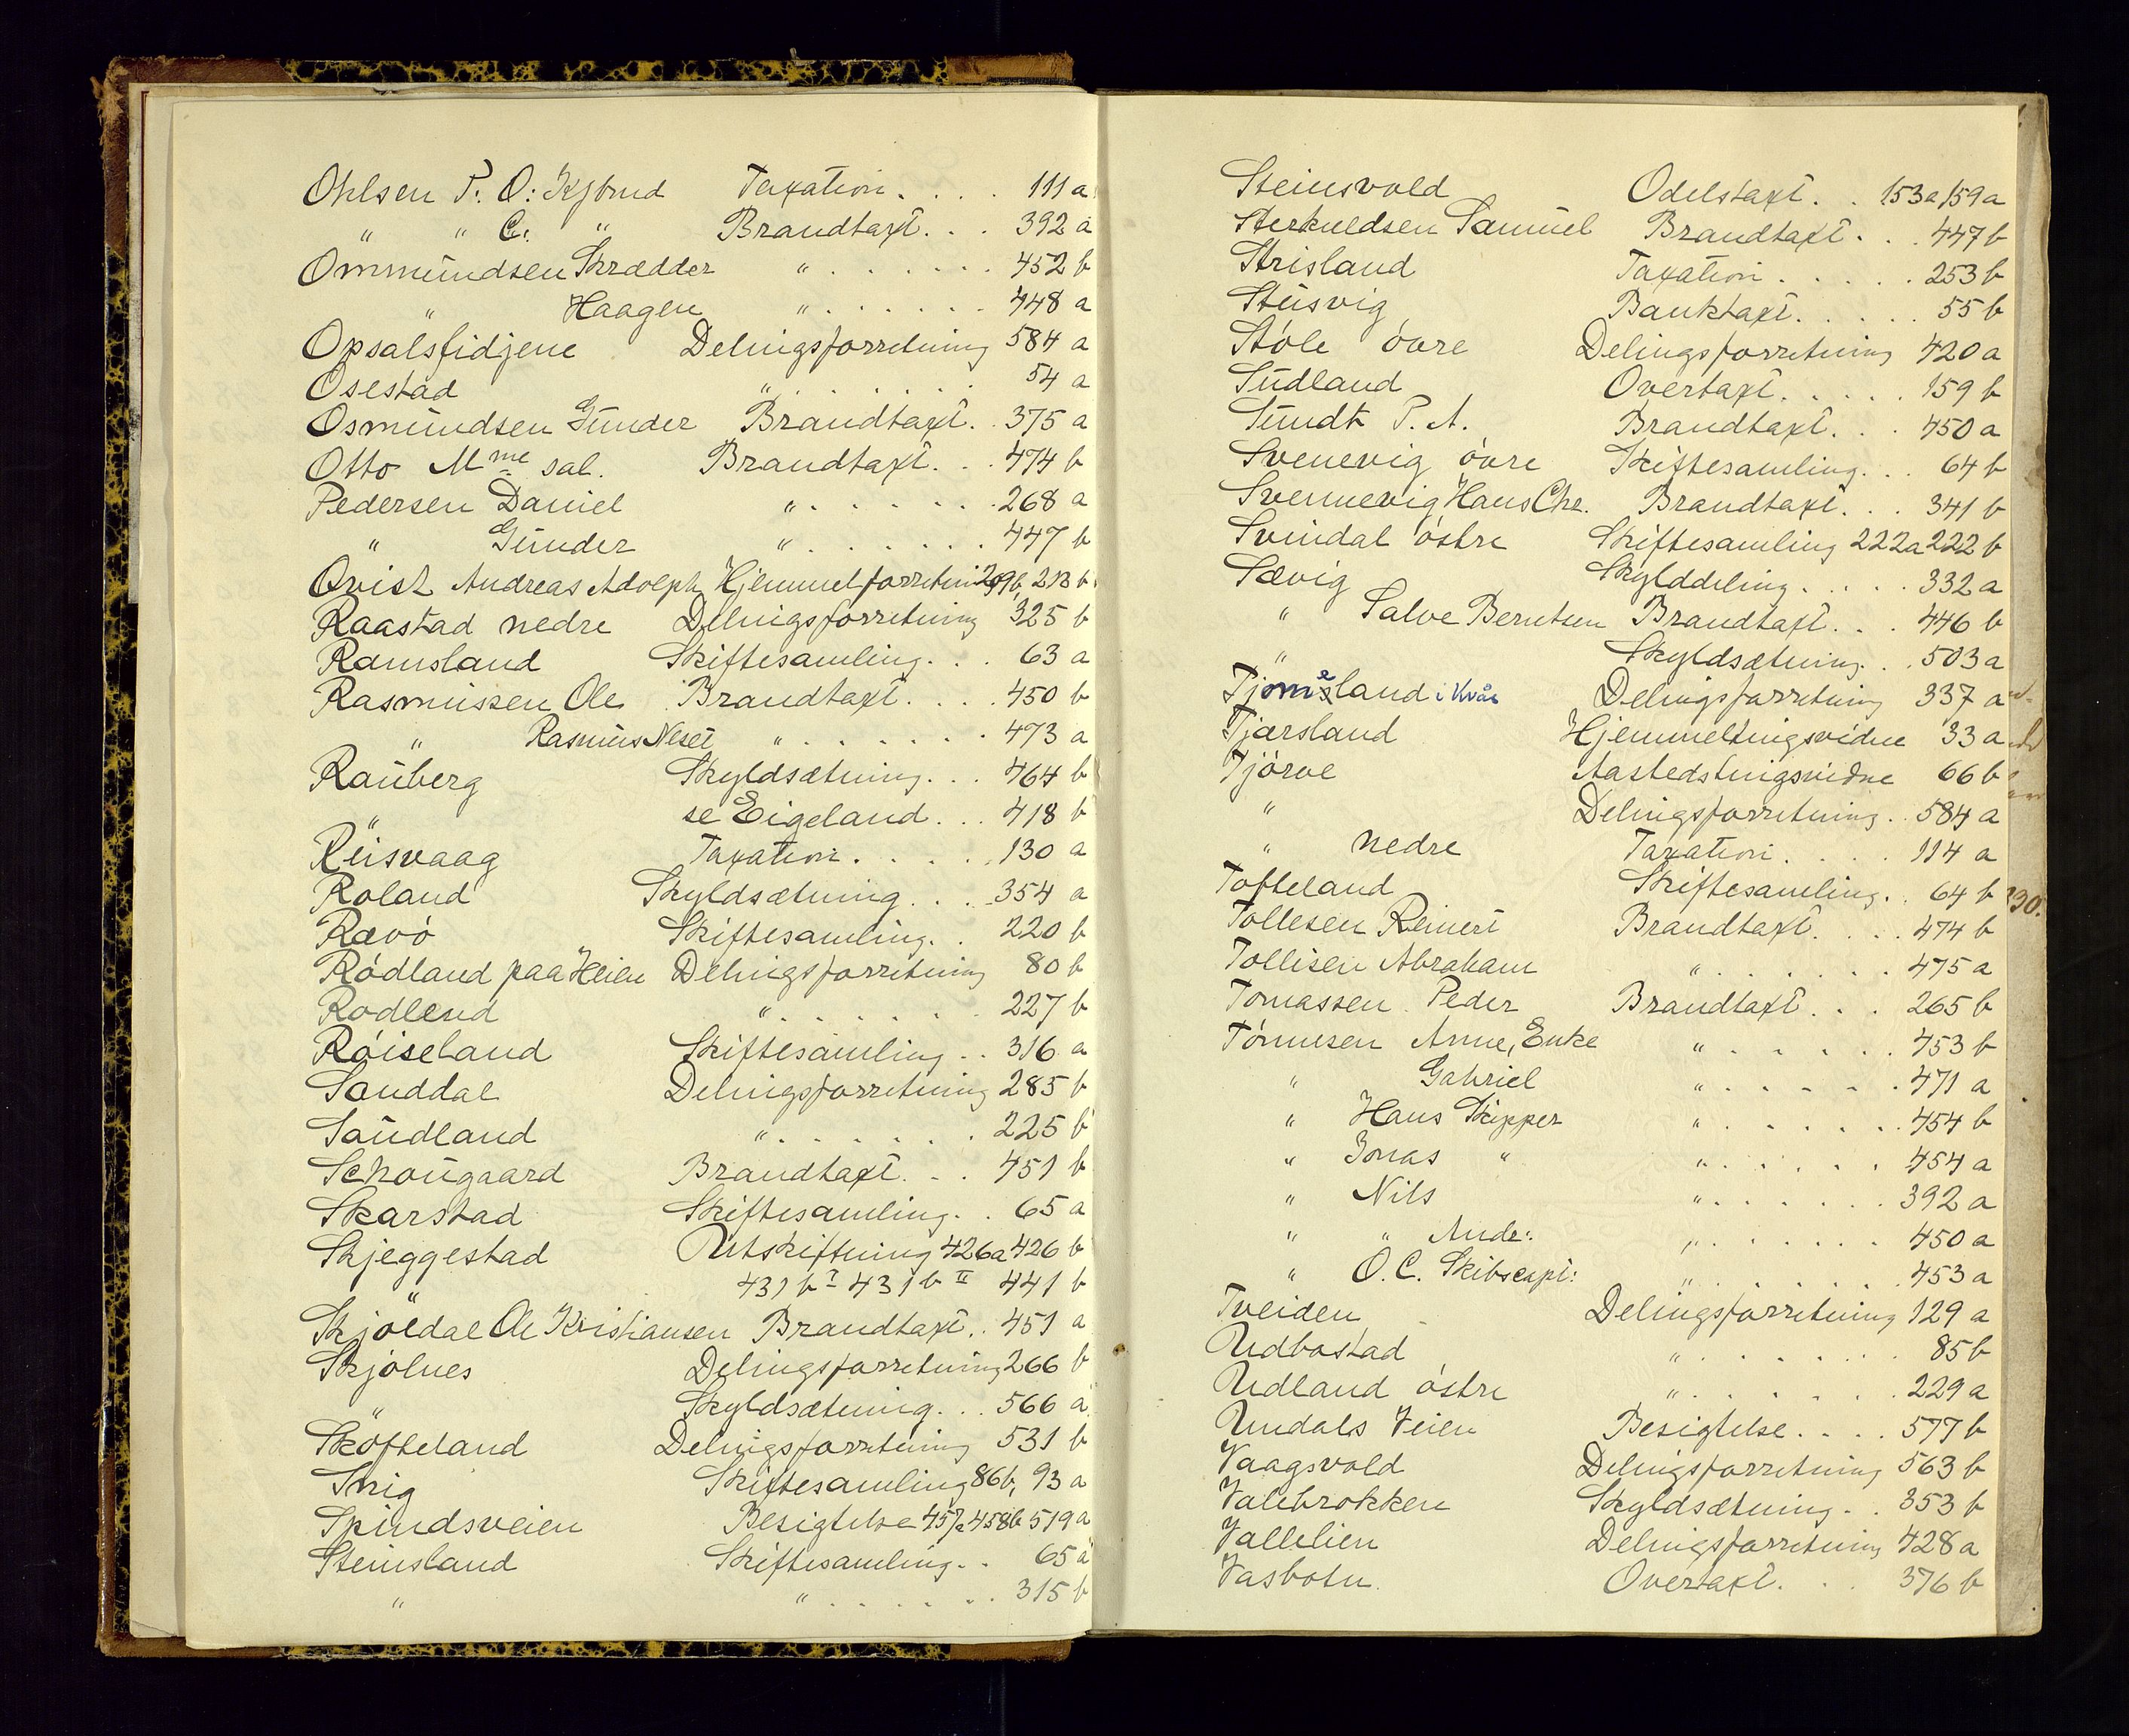 Ohlsen P. O: Kjbmd Taxation. . . . 111 a
" " C. " Brandtaxt. . . 392 a
Ommundsen Skrædder " . . . . . . . 452 b
" Haagen " . . . . . . . 448 a
Opsalsfidjene Delingsforretning 584 a
Osestad " . . . . . . . 54 a
Osmundsen Gunder Brandtaxt. . 375 a
Otto Mme sal. Brandtaxt. . . 474 b
Pedersen Daniel " . . . . . . . 268 a
" Gunder " . . . . . . . 447 b
Qvist Andreas Adolph Hjemmelforretning 209 b, 213 b
Raastad nedre Delingsforretning 325 b
Ramsland Skiftesamling. . . 63 a
Rasmussen Ole Brandtaxt. . . . 450 b
" Rasmus Neset " . . . . . . . 473 a
Rauberg Skyldsætning. . . 464 b
" se Eigeland. . . 418 b
Reisvaag Taxation. . . . . 130 a
Roland Skyldsætning. . . . 354 a
Rævö Skiftesamling. . 220 b
Rödland paa Heien Delingsforretning 80 b
Rödland " . . . . . . . 227 b
Röiseland Skiftesamling . . 316 a
Sanddal Delingsforretning 285 b
Saudland " . . . . . . . 225 b
Schougaard Brandtaxt. . . 451 b
Skarstad Skiftesamling. . 65 a
Skjeggestad Utskiftning 426a 426 b
" 431 b I 431 b II 441 b
Skjöldal Ole Kristiansen Brandtaxt. . 451 a
Skjölnes Delingsforretning 266 b
" Skyldsætning. . . 566 a
Sköfteland Delingsforretning 531 b
Snig Skiftesamling 86b, 93 a
Spindsveien Besigtelse 457a 458b 519 a
Steinsland Skiftesamling. . 65 a
" " . . . . . . . 315 b
Steinsvold Odelstaxt. . 153a, 159a
Sterkuldsen Samuel Brandtaxt. . . 447 b
Strisland Taxation . . . . . 253 b
Stusvig Banktaxt. . . . . 55 b
Stöle övre Delingsforretning 420 a
Sudland Overtaxt. . . . . 159 b
Sundt P. A. Brandtaxt. . . 450 a
Svenevig övre Skiftesamling. . . 64 b
Svennevig Hans Chr. Brandtaxt. . . 341 b
Svindal östre Skiftesamling 222a 222 b
Sævig Skylddeling. . . . . 332 a
" Salve Berntsen Brandtaxt. . . 446 b
" Skyldsætning. . . 503 a
Tjomsland i Kvås Delingsforretning 337 a
Tjærsland Hjemmeltingsvidne 33 a
Tjörve Aastedstingsvidne 66 b
" Delingsforretning. . 584 a
" nedre Taxation. . . . . 114 a
Tofteland Skiftesamling. . 64 b 230.
Tollesen Reinert Brandtaxt. . . . 474 b
Tollisen Abraham " . . . . . . . 475 a
Tomassen Peder Brandtaxt. . . 265 b
Tönnesen Anne, Enke " . . . . . . 453 b
" Gabriel " . . . . . . 471 a
" Hans Skipper " . . . . . . 454 b
" Jonas " " . . . . . . 454 a
" Nils " . . . . . . 392 a
" " Andr: " . . . . . . 450 a
" O. C. Skibscapt: " . . . . . . 453 a
Tveiden Delingsforretning 129 a
Udbostad " . . . . . . 85 b
Udland östre " . . . . . . 229 a
Undals Veien Besigtelse. . . . 577 b
Vaagsvold Delingsforretning 563 b
Valebrokken Skyldsætning. . 353 b
Vallelien Delingsforretning 428 a
Vasbotn. Overtaxt. . . 376 b